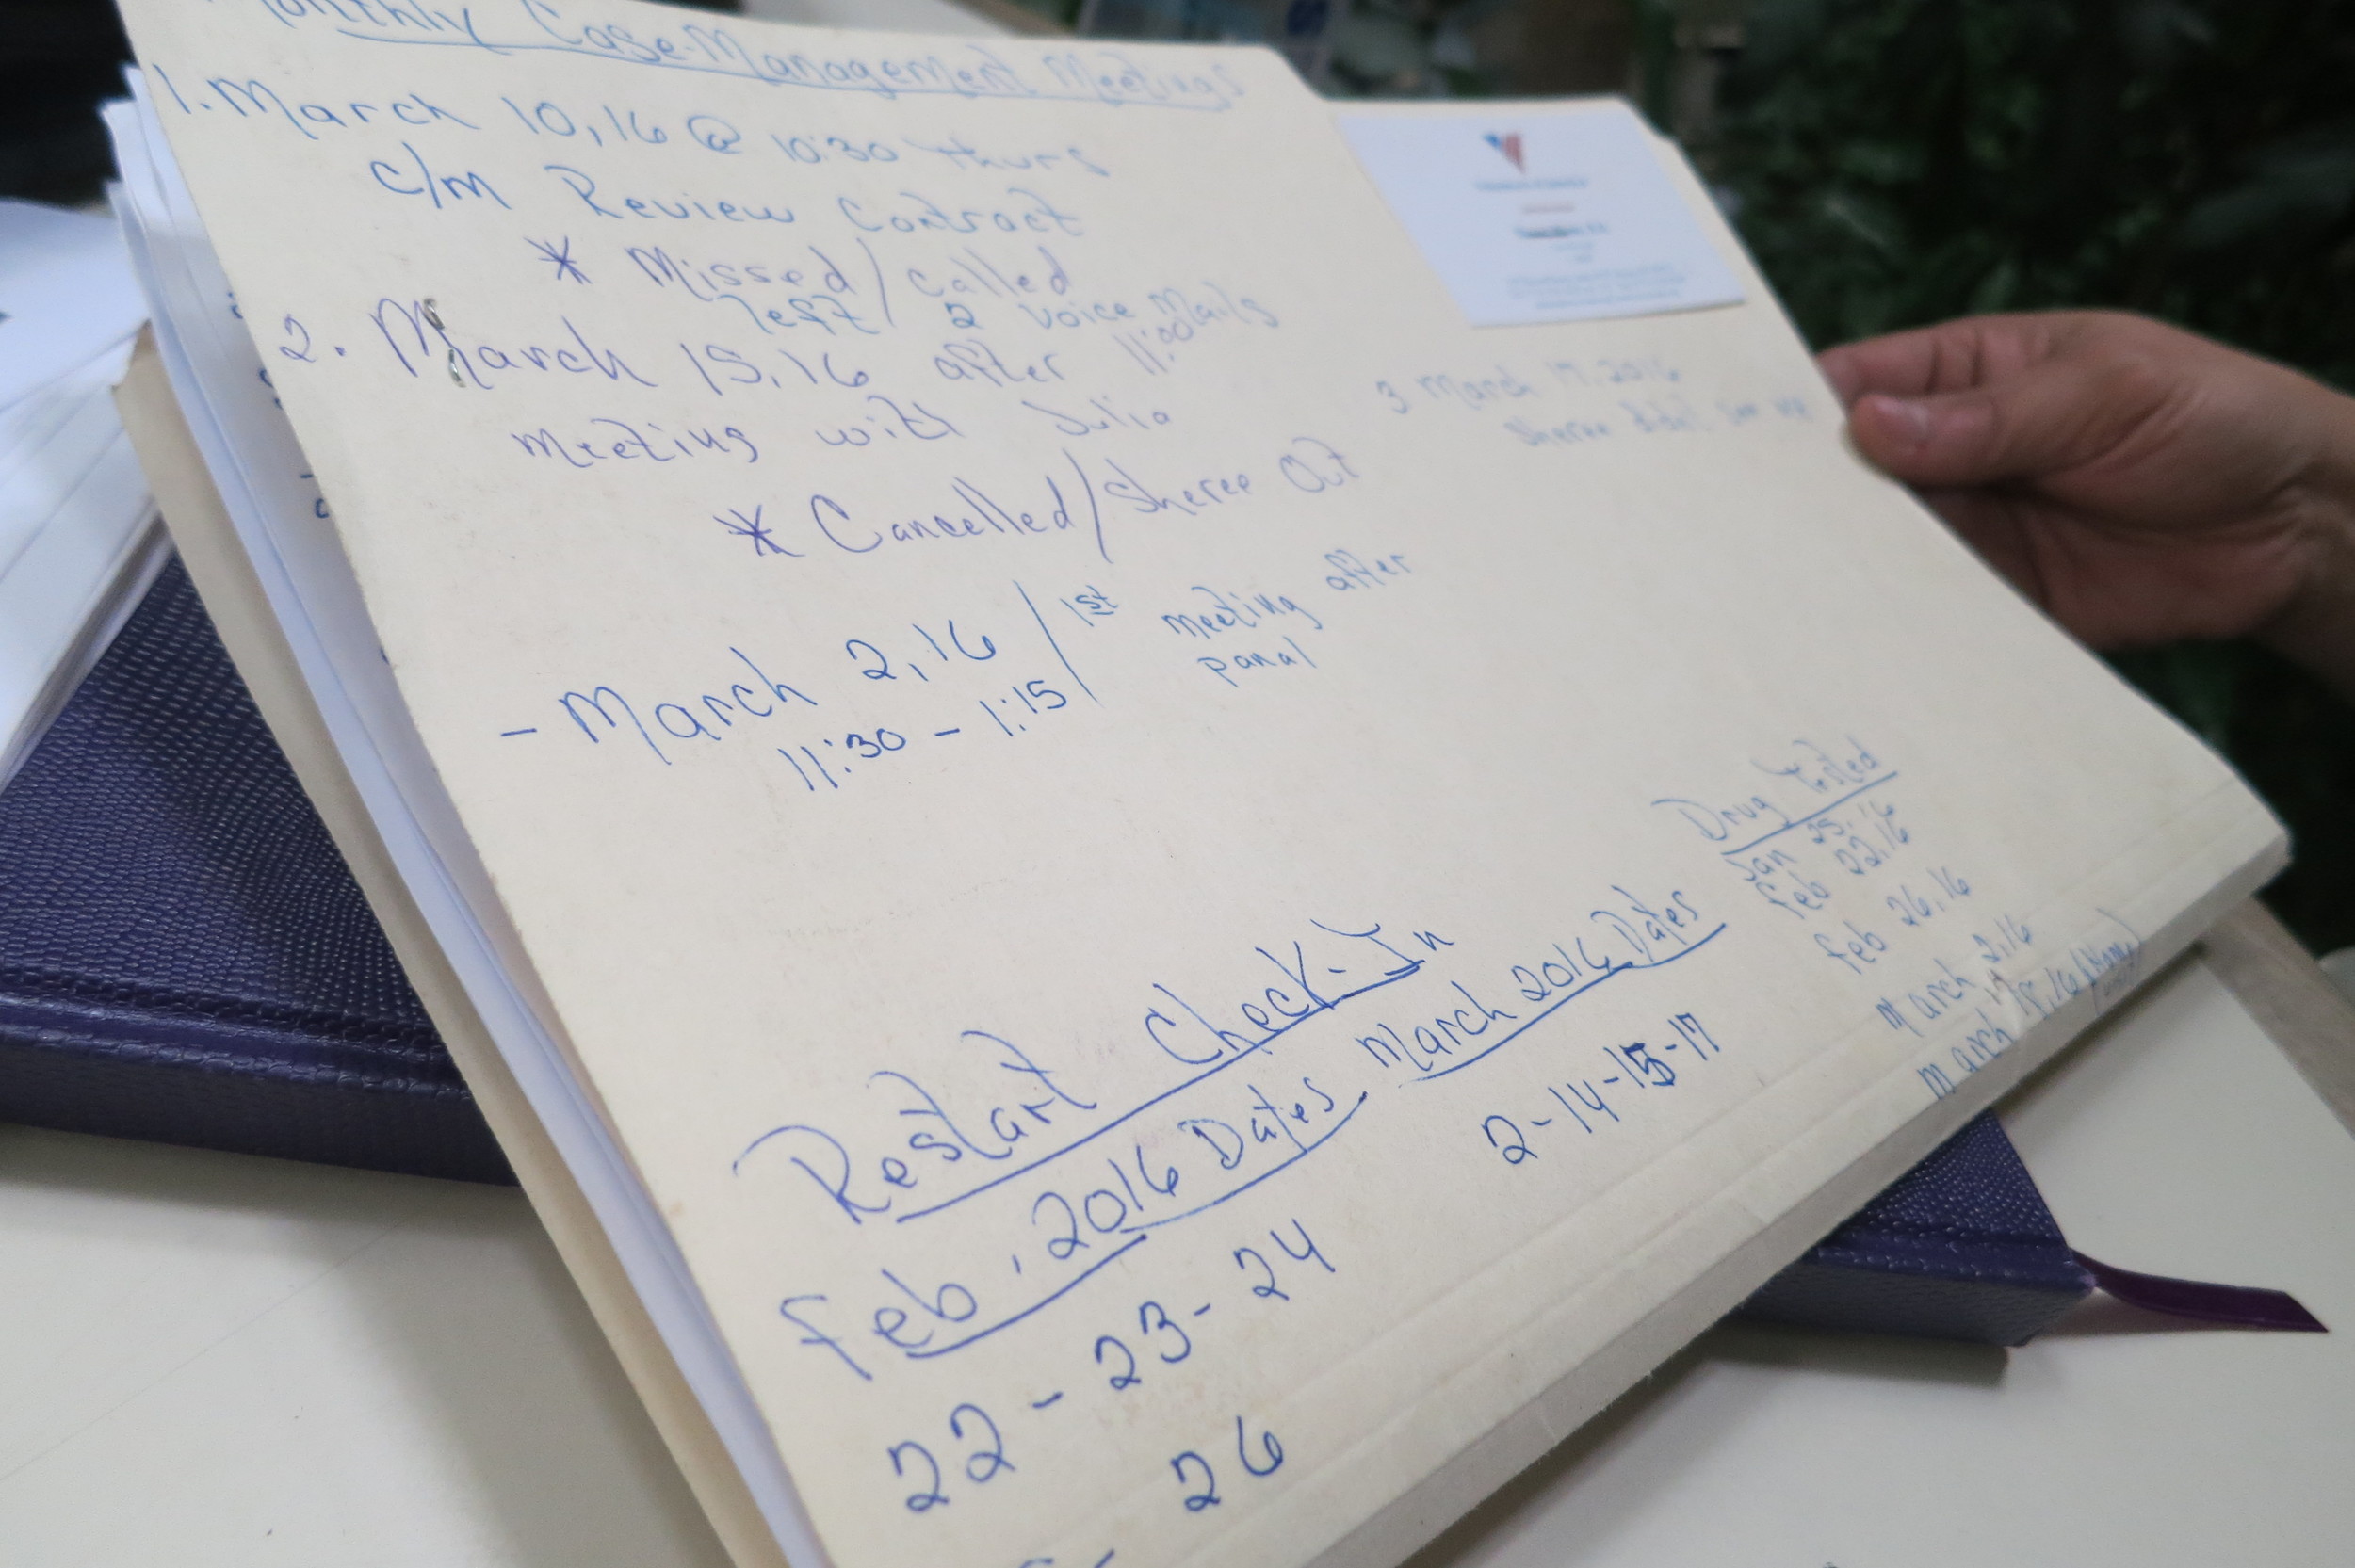 Monthly Case-Management Meetings
1. March 10, 16 @ 10:30 thurs
c/m Review Contract
* Missed / called
left 2 voice Mails
2. March 15, 16 after 11:00
meeting with Julia
* Cancelled / Sheree Out
3 March 17, 2016
Sheree didn't
- March 2, 16 / 1st meeting after
panal
11:30 - 1:15
Drug Tested
Jan 25, 16
Feb 22, 16
Feb 26, 16
March 2, 16
March 15, 16
Restart Check-In
Feb, 2016 Dates
22 - 23 - 24
26
March 2016 Dates
2 - 14 - 15 - 17